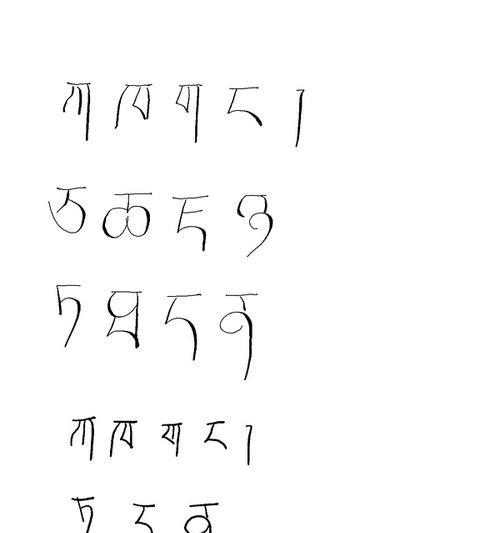 ཀ ཁ ག ང །
ཅ ཆ ཇ ཉ
ཏ ཐ ད ན
ཀ ཁ ག ང །
ཏ ད ན